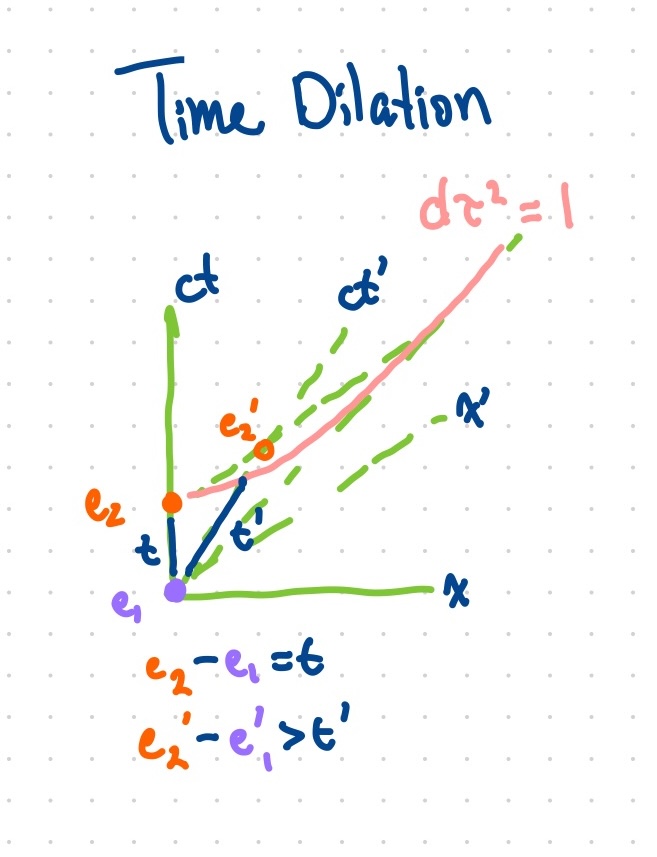 Time Dilation
dτ² = 1
ct
ct'
x'
e₂'
e₂
t
t'
e₁
x
e₂ - e₁ = t
e₂' - e₁' > t'